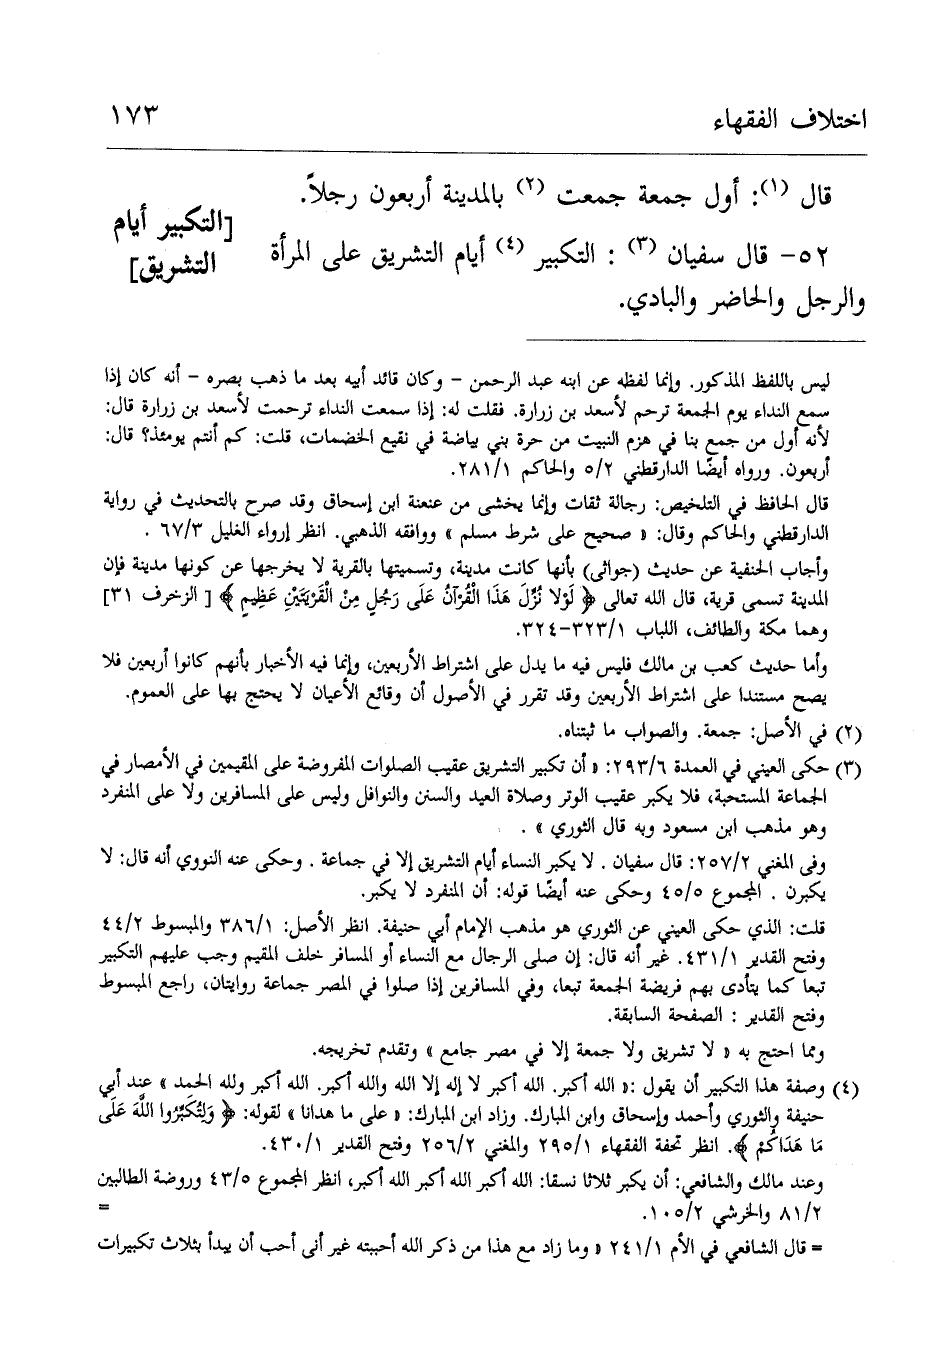 اختلاف الفقهاء
١٧٣
قال (١): أول جمعة جمعت (٢) بالمدينة أربعون رجلاً.
[التكبير أيام
التشريق]
٥٢- قال سفيان (٣) : التكبير (٤) أيام التشريق على المرأة
والرجل والحاضر والبادي.
ليس باللفظ المذكور. وإنما لفظه عن ابنه عبد الرحمن - وكان قائد أبيه بعد ما ذهب بصره - أنه كان إذا
سمع النداء يوم الجمعة ترحم لأسعد بن زرارة. فقلت له: إذا سمعت النداء ترحمت لأسعد بن زرارة قال:
لأنه أول من جمع بنا في هزم النبيت من حرة بني بياضة في نقيع الخضمات، قلت: كم أنتم يومئذ؟ قال:
أربعون. ورواه أيضًا الدارقطني ٥/٢ والحاكم ٢٨١/١.
قال الحافظ في التلخيص: رجالة ثقات وإنما يخشى من عنعنة ابن إسحاق وقد صرح بالتحديث في رواية
الدارقطني والحاكم وقال: « صحيح على شرط مسلم » ووافقه الذهبي. انظر إرواء الغليل ٦٧/٣ .
وأجاب الحنفية عن حديث (جواثى) بأنها كانت مدينة، وتسميتها بالقرية لا يخرجها عن كونها مدينة فإن
المدينة تسمى قرية، قال الله تعالى ﴿ لَوْلا نُزِّلَ هَذَا الْقُرْآنُ عَلَى رَجُلٍ مِنَ الْقَرْيَتَيْنِ عَظِيمٍ ﴾ [ الزخرف ٣١]
وهما مكة والطائف، اللباب ٣٢٣/١-٣٢٤.
وأما حديث كعب بن مالك فليس فيه ما يدل على اشتراط الأربعين، وإنما فيه الأخبار بأنهم كانوا أربعين فلا
يصح مستندا على اشتراط الأربعين وقد تقرر في الأصول أن وقائع الأعيان لا يحتج بها على العموم.
(٢) في الأصل: جمعة. والصواب ما ثبتناه.
(٣) حكى العيني في العمدة ٢٩٣/٦: « أن تكبير التشريق عقيب الصلوات المفروضة على المقيمين في الأمصار في
الجماعة المستحبة، فلا يكبر عقيب الوتر وصلاة العيد والسنن والنوافل وليس على المسافرين ولا على المنفرد
وهو مذهب ابن مسعود وبه قال الثوري » .
وفى المغني ٢٥٧/٢: قال سفيان . لا يكبر النساء أيام التشريق إلا في جماعة . وحكى عنه النووي أنه قال: لا
يكبرن . المجموع ٤٥/٥ وحكى عنه أيضًا قوله: أن المنفرد لا يكبر.
قلت: الذي حكى العيني عن الثوري هو مذهب الإمام أبي حنيفة. انظر الأصل: ٣٨٦/١ والمبسوط ٤٤/٢
وفتح القدير ٤٣١/١. غير أنه قال: إن صلى الرجال مع النساء أو المسافر خلف المقيم وجب عليهم التكبير
تبعا كما يتأدى بهم فريضة الجمعة تبعا، وفي المسافرين إذا صلوا في المصر جماعة روايتان، راجع المبسوط
وفتح القدير : الصفحة السابقة.
ومما احتج به « لا تشريق ولا جمعة إلا في مصر جامع » وتقدم تخريجه.
(٤) وصفة هذا التكبير أن يقول :« الله أكبر. الله أكبر لا إله إلا الله والله أكبر. الله أكبر ولله الحمد » عند أبي
حنيفة والثوري وأحمد وإسحاق وابن المبارك. وزاد ابن المبارك: « على ما هدانا » لقوله: ﴿ وَلِتُكَبِّرُوا اللَّهَ عَلَى
مَا هَدَاكُمْ ﴾. انظر تحفة الفقهاء ٢٩٥/١ والمغني ٢٥٦/٢ وفتح القدير ٤٣٠/١.
وعند مالك والشافعي: أن يكبر ثلاثا نسقا: الله أكبر الله أكبر الله أكبر، انظر المجموع ٤٣/٥ وروضة الطالبين
٨١/٢ والخرشي ١٠٥/٢. =
= قال الشافعي في الأم ٢٤١/١ « وما زاد مع هذا من ذكر الله أحببته غير أنى أحب أن يبدأ بثلاث تكبيرات